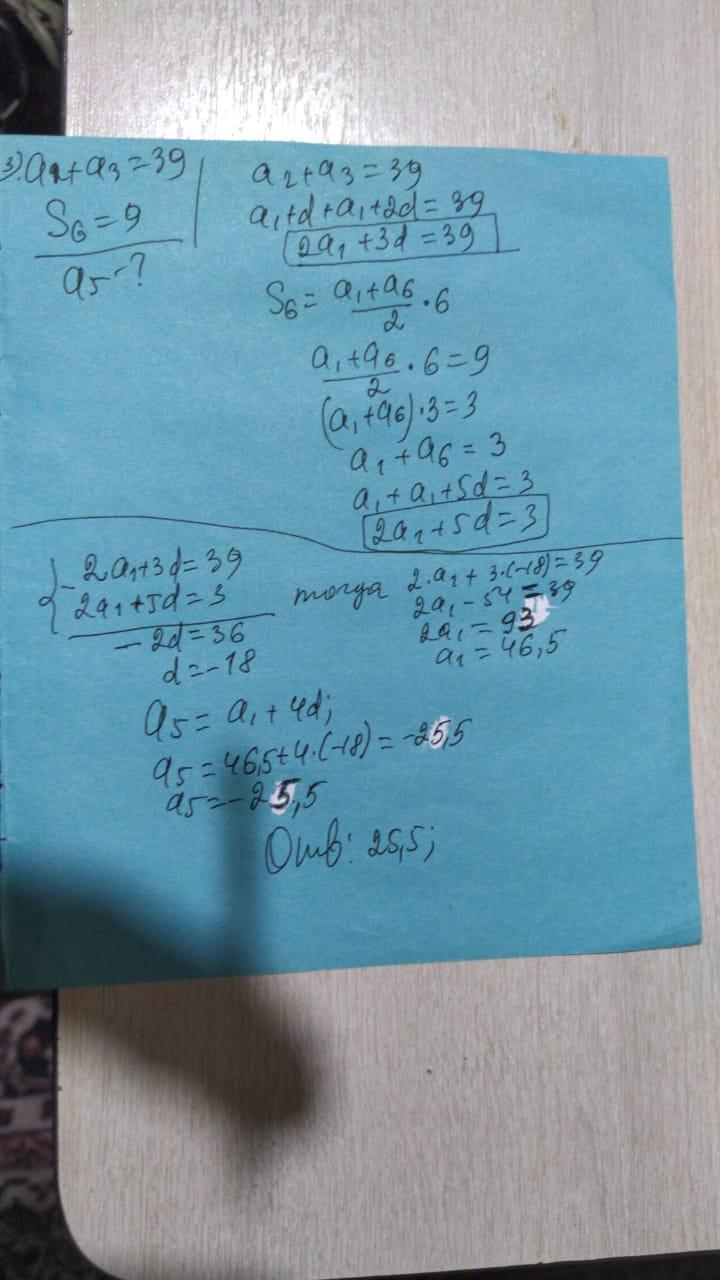 3). a2+a3=39
S6=9
a5-?
a2+a3=39
a1+d+a1+2d=39
2a1+3d=39
S6= a1+a6/2 · 6
a1+a6/2 · 6=9
(a1+a6)·3=3
a1+a6=3
a1+a1+5d=3
2a1+5d=3
{- 2a1+3d=39
2a1+5d=3
-2d=36
d=-18
тогда 2·a1+3·(-18)=39
2a1-54=39
2a1=93
a1=46,5
a5=a1+4d;
a5=46,5+4·(-18)=-25,5
a5=-25,5
Отв: 25,5;